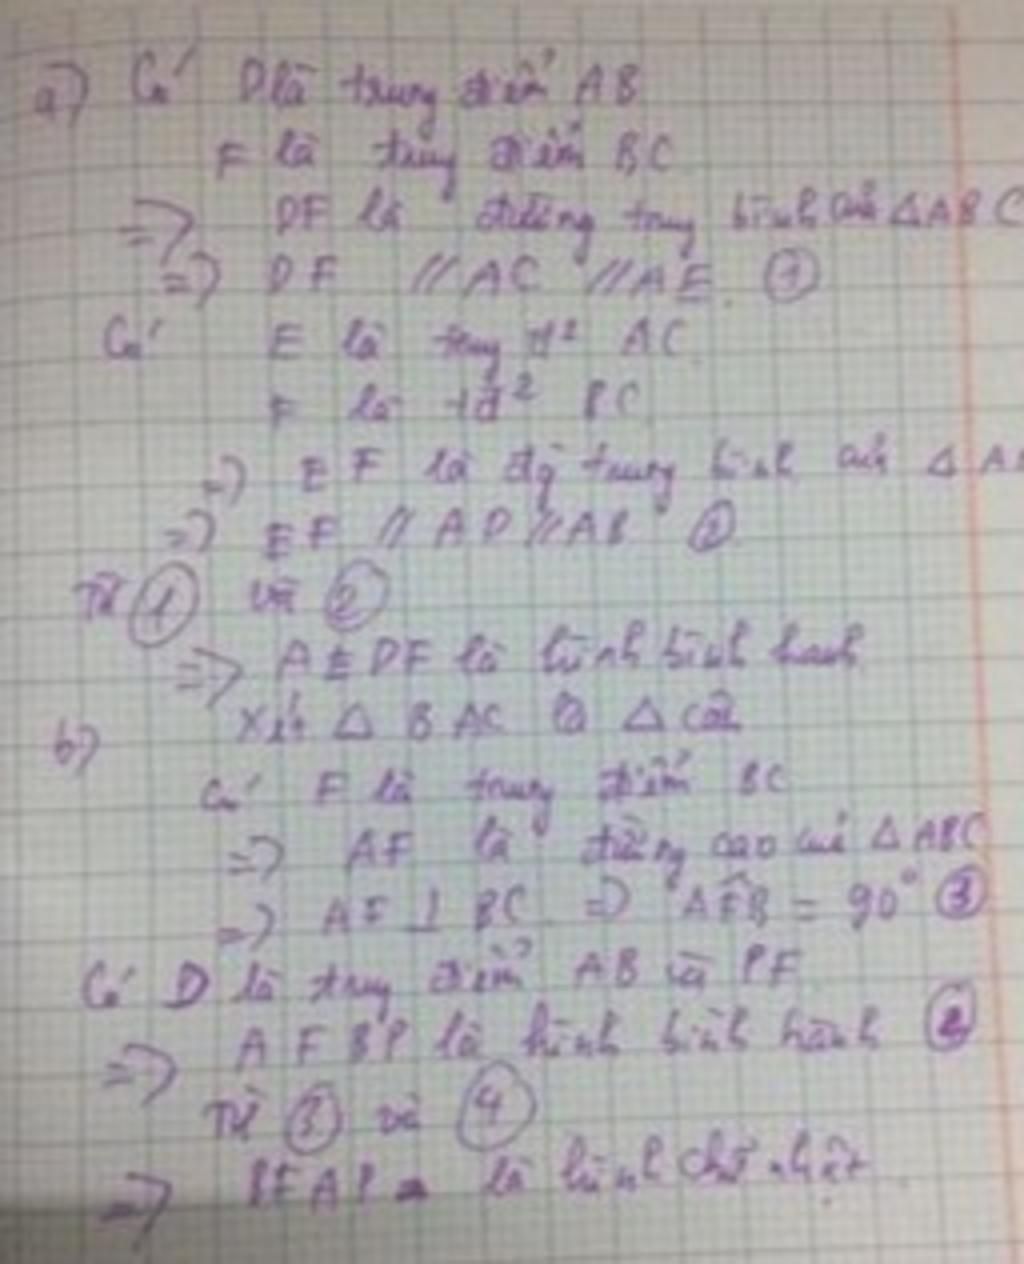 a) Có D là trung điểm AB
F là trung điểm BC
=> DF là đường trung bình của △ABC
=> DF // AC // AE. ①
Có E là trung đ² AC
F là tđ² BC
=> EF là đg trung bình của △ A
=> EF // AD // AB ②
Từ ① và ②
=> AEDF là hình bình hành
b) Xét △ BAC là △ cân
Có F là trung điểm BC
=> AF là đường cao của △ABC
=> AF ⊥ BC => AFB = 90° ③
Có D là trung điểm AB và PF
=> AFBP là hình bình hành
Từ ③ và ④
=> BFAP là hình chữ nhật